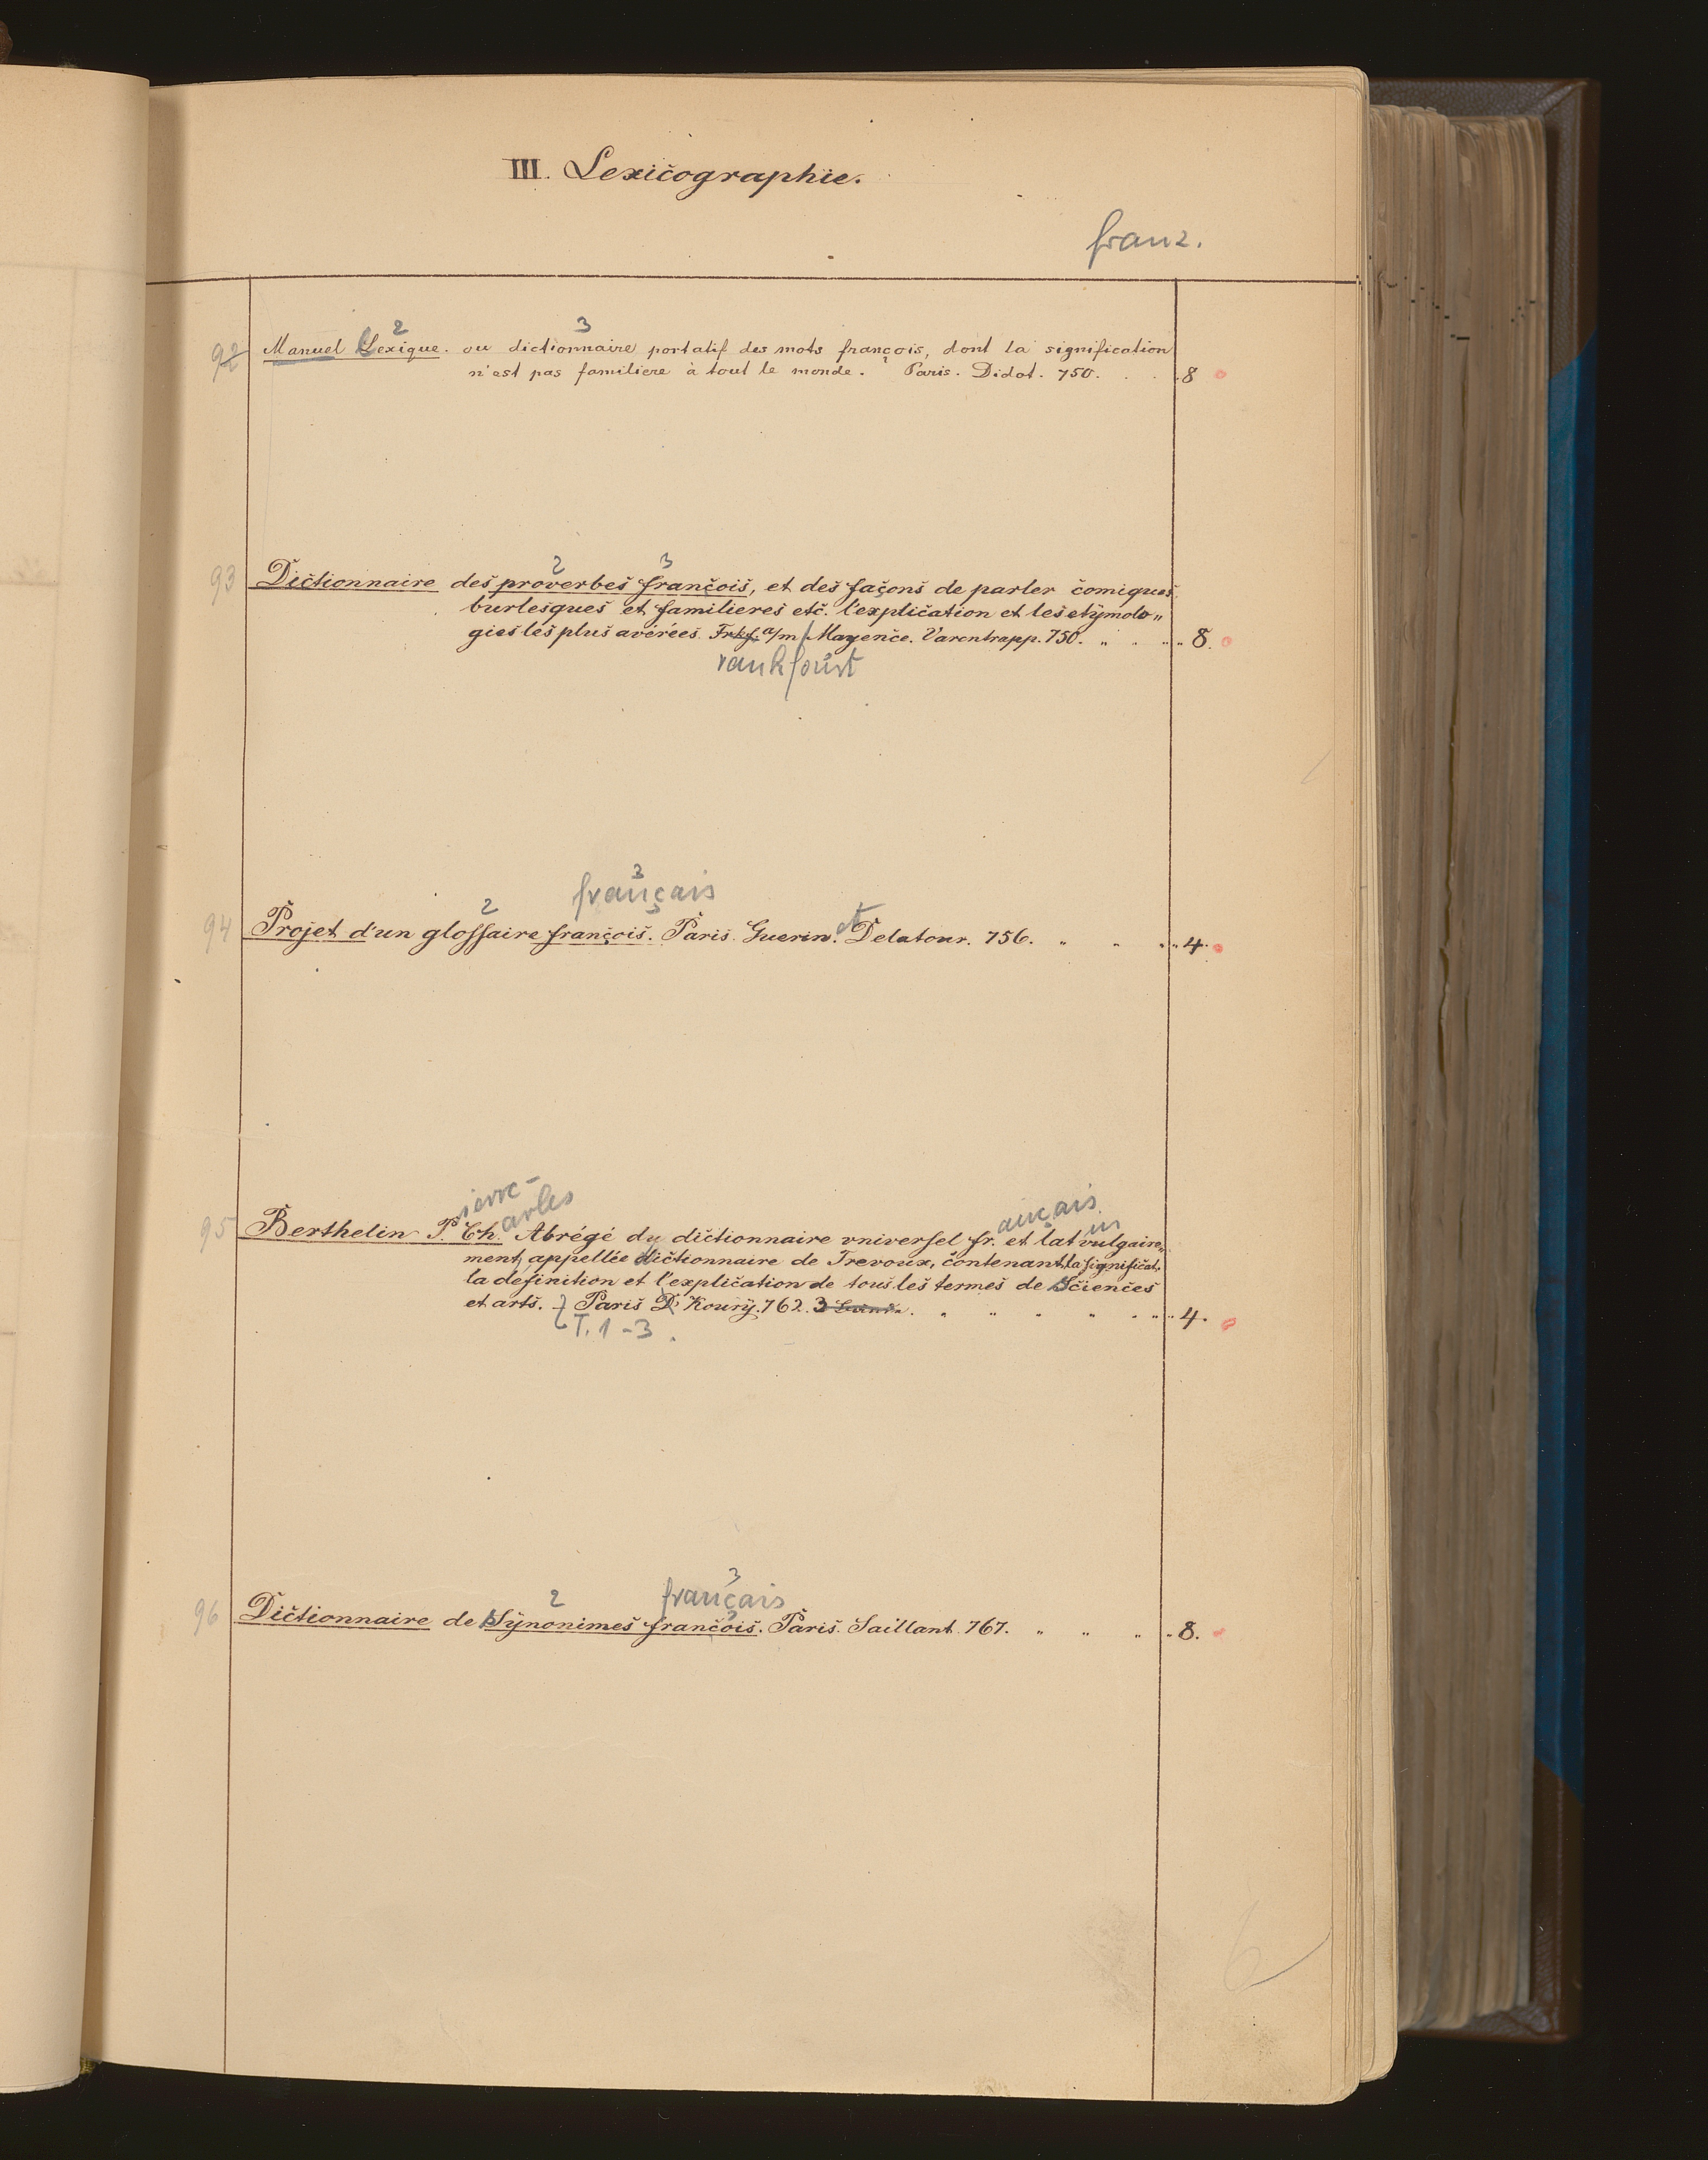 III. Lexicographie.
franz.
2 3
92 Manuel Lexique. ou dictionnaire portatif des mots françois, dont la signification
n'est pas familiere à tout le monde. Paris. Didot. 750. . . . 8
2 3
93 Dictionnaire des proverbes françois, et des façons de parler comiques,
burlesques et familieres etc. l'explication et les etymolo„
gies les plus avérées. Frkf. a/m Mayence. Varentrapp. 750. „ . „ 8.
rankfourt
3
2 français
94 Projet d'un glossaire françois. Paris. Guerin. et Delatour. 756. „ „ „ 4.
ierre-
arles ançais in
95 Berthelin P. Ch. Abrégé du dictionnaire vniversel fr. et lat vulgaire„
ment appellée dictionnaire de Trevoux, contenant la significat.
la definition et l'explication de tous les termes de Sciences
et arts. Paris D. Koury. 762. 3 . „ „ „ . „ 4.
T. 1-3.
3
2 français
96 Dictionnaire de Synonimes françois. Paris. Saillant. 767. „ „ „ „ 8.
6